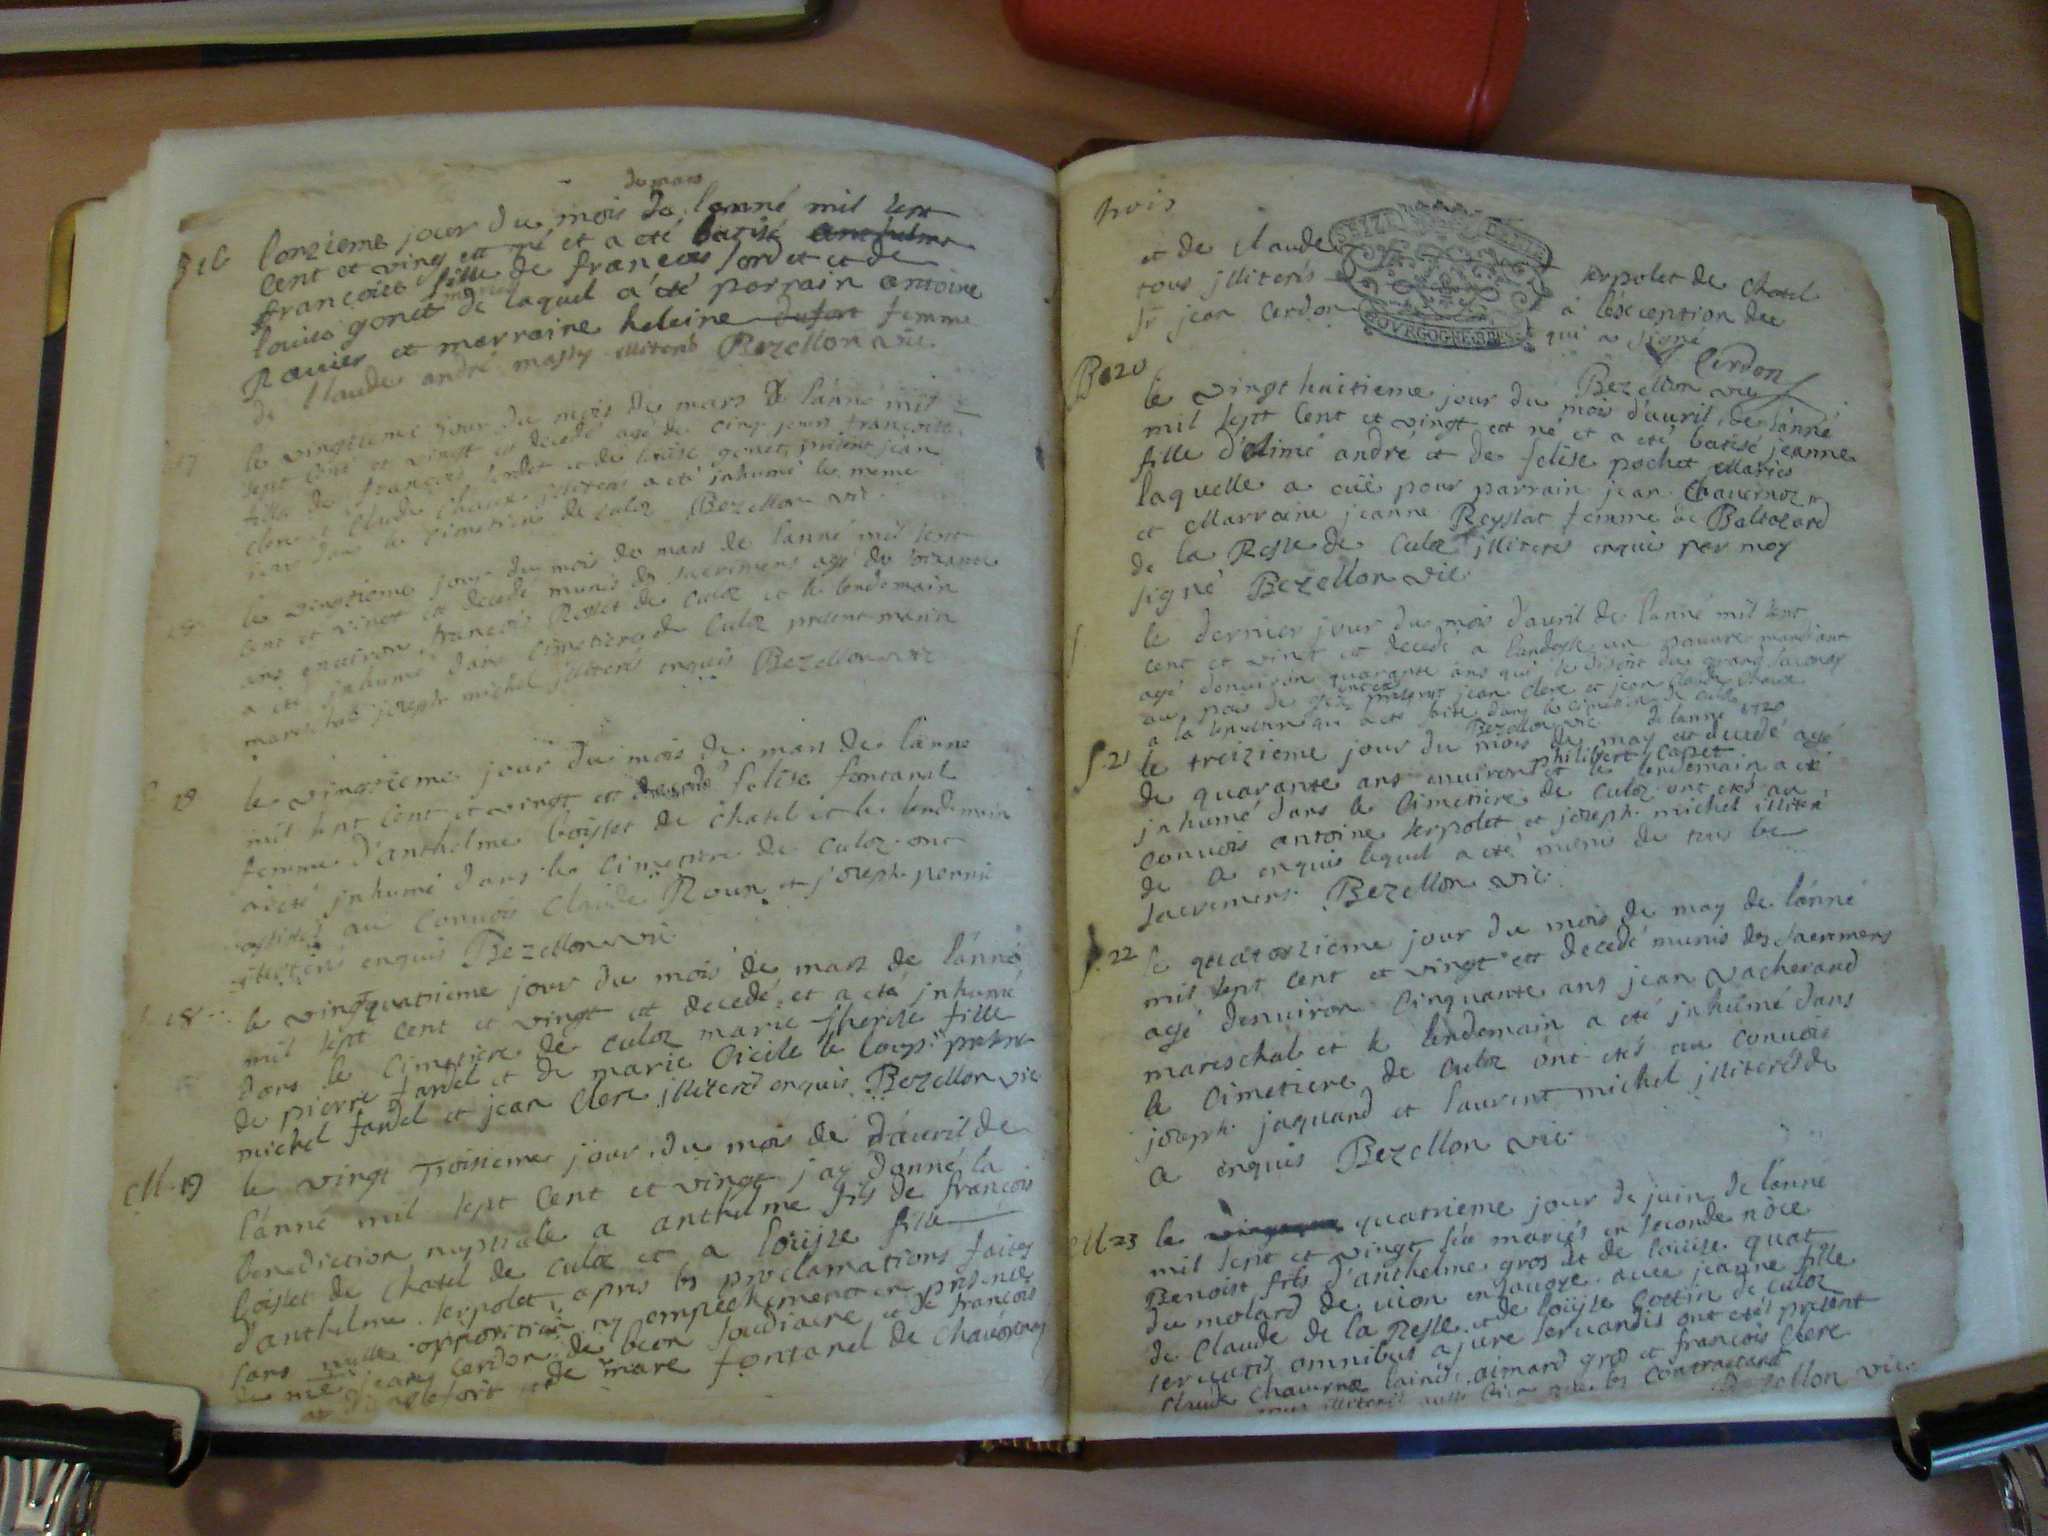 de mars
lonzieme jour du mois de lanné mil sept
cent et ving est né et a eté batisé
françoise fille de francois sordet et de
mariés
louise gonet de laquel a été parrain antoine
Ravier et marraine heleine femme
de Claude andré massy illiterés Bezellon vic
le vingtieme jour du mois de mars de lánné mil
sept cent et vingt est decedé agé de cinq jours francoise
fille de francois sordet et de louise gonet, présent jean
clerc et Claude Chaux illiterés a eté inhumé le meme
jour dans le cimetiere de culoz Bezellon vic
le vingtieme jour du mois de mars de lanné mil sept
cent et vingt est decedé munis des sacremens agé de soixante
ans environ francois Rosset de culoz et le lendemain
a eté inhumé dans cimetiere de culoz present
mareschal joseph michel illiterés enquis Bezellon vic
18
le vingtieme jour du mois de mars de lánné
mil sept cent et vingt est decedé felise fontanel
femme d'anthelme boisset de chatel et le lendemain
a été inhumé dans le cimetiere de culoz ont
assistés au convois claude Roux et joseph pernié
enquis Bezellon vic
18
le vingtquatrieme jour du mois de mars de lánné
mil sept cent et vingt est decedé et a eté inhumé
dans le cimetiere de culoz marie fille
de pierre fardel et de marie Cicile le loup presents
michel fardel et jean Clerc illiterés enquis Bezellon vic
M.19
le vingt Troisieme jour du mois de d'avril de
lánné mil sept cent et vingt jay donné la
benediction nuptiale a anthelme fils de francois
boisset de chatel de culoz et a loüise fille
d'anthelme serpolet apres les proclamations faites
sans nulle opposition ny empechement en presence
de me jean cerdon de beon soudiacre et de francois
de mare fontanel de
trois
et de claude serpolet de chatel
tous illiterés à léxception de
sr jean Cerdon qui a signé
Cerdon
Bezellon vic
B.20
le vingt huitieme jour du mois d'avril de lánné
mil sept Cent et vingt est né et a eté batisé jeanne
fille d'Aimé andré et de felise pochet Mariés
laquelle a euë pour parrain jean Chavernoz
et Marraine jeanne Reyslat femme de Baltazard
de la Resle de Culoz illiterés enquis par moy
signé Bezellon vic
le dernier jour du mois d'avril de lánné mil sept
cent et vingt est decedé a landesse un pauvre mandiant
agé denviron quarante ans qui se disoit du grand
au pais de gex present jean Clerc et jean Claude Chaux
a la sepulture qui a eté faite dans le cimetiere de culoz
Bezellon vic
S.21
le treizieme jour du mois de may de lanné 1720 est decedé agé
de quarante ans environ philibert Capet et le lendemain a eté
inhumé dans le Cimetiere de Culoz ont etés au
convois antoine serpolet et joseph michel illiteré
de a enquis lequel a eté munis de tous les
sacremens. Bezellon vic
S.22
le quatorzieme jour du mois de may de lánné
mil sept cent et vingt est decedé munis des sacremens
agé denviron Cinquante ans jean vacherand
mareschal et le lendemain a eté inhumé dans
le Cimetiere de Culoz ont etés au convois
joseph jaquand et laurent michel illiterés de
a enquis Bezellon vic
M.23
le quatrieme jour de juin de lánné
mil sept et vingt mariés en seconde nôce
Benoist fils d'anthelme gros et de loüise quat
du molard de vion avec jeanne fille
de Claude de la Resle et de loüise Cottin de Culoz
servatis omnibus a jure servandis ont etés present
Claude Chavernoz lainé, aimard gros et francois Clerc
tous illiterés contractant
Bezellon vic